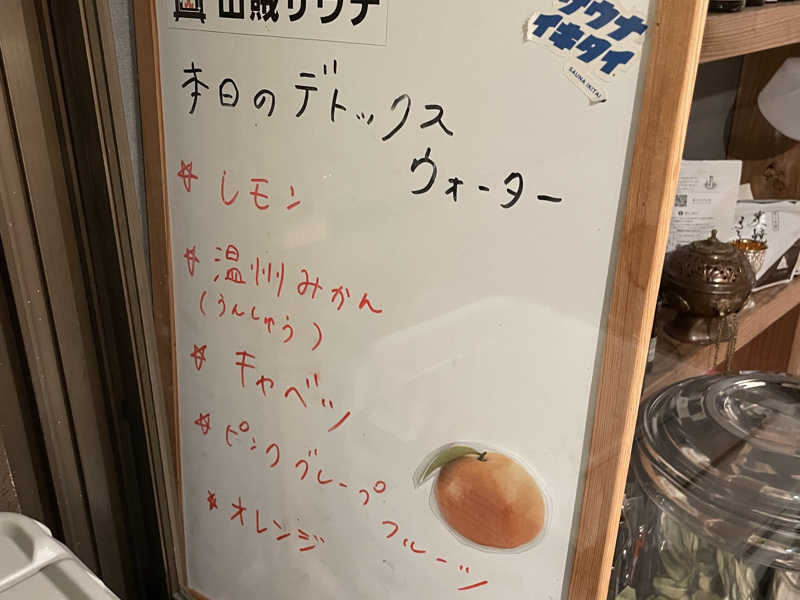 山賊サウナ
サウナ
イキタイ
SAUNA IKITAI
本日のデトックス
ウォーター
☆ レモン
☆ 温州みかん
(うんしゅう)
☆ キャベツ
☆ ピンクグレープ
フルーツ
☆ オレンジ